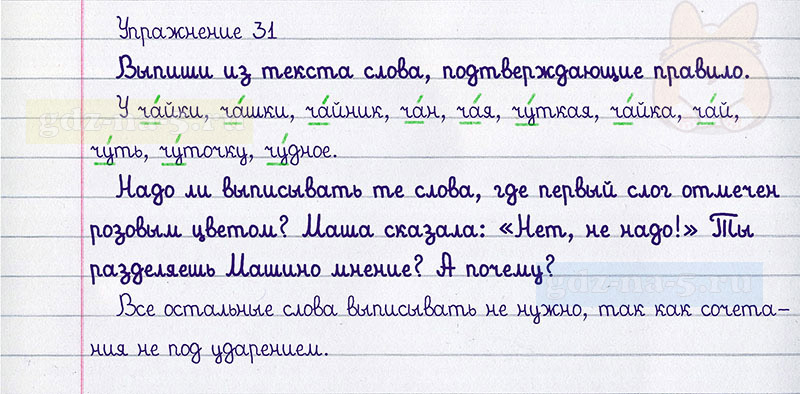 Упражнение 31
Выпиши из текста слова, подтверждающие правило.
У ча́йки, ча́шки, ча́йник, ча́н, ча́я, чу́ткая, ча́йка, ча́й,
чу́ть, чу́точку, чу́дное.
Надо ли выписывать те слова, где первый слог отмечен
розовым цветом? Маша сказала: «Нет, не надо!» Ты
разделяешь Машино мнение? А почему?
Все остальные слова выписывать не нужно, так как сочета-
ния не под ударением.
gdz-na-s.ru
gdz-na-s.ru